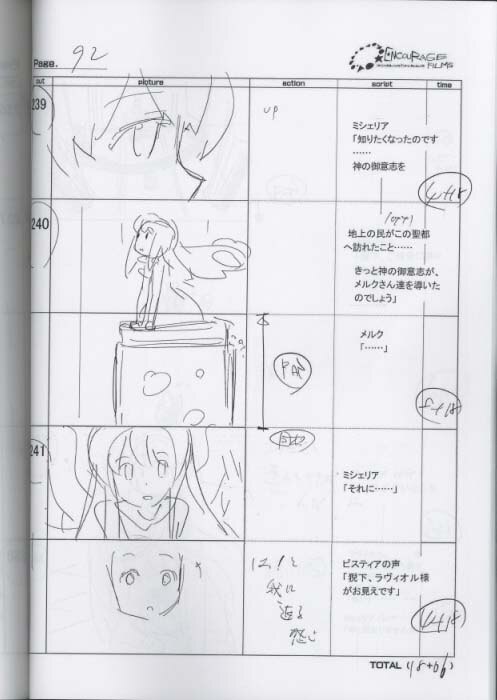 Page. 92
ENCOURAGE
FILMS
cut picture action script time
239
up
ミシェリア
「知りたくなったのです
……
神の御意志を
4+18
240
地上の民がこの聖都
へ訪れたこと……
きっと神の御意志が、
メルクさん達を導いた
のでしょう」
メルク
「……」
PAN
241
ミシェリア
「それに……」
ピスティアの声
「猊下、ラヴィオル様
がお見えです」
ハ!と
我に
返る
感じ
4+18
TOTAL (18+06)